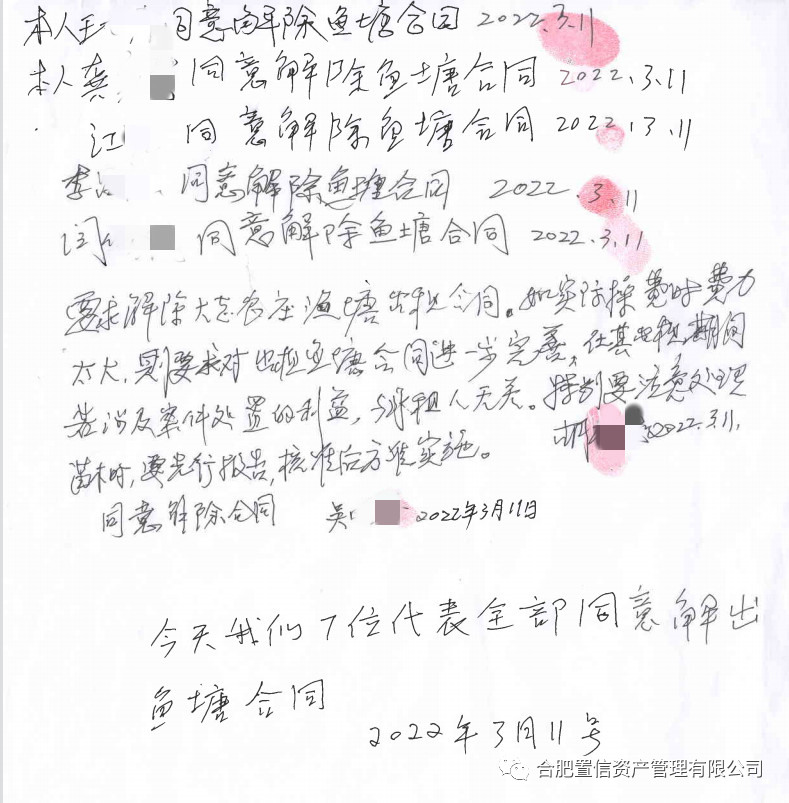 本人王 同意解除鱼塘合同 2022.3.11
本人龚 同意解除鱼塘合同 2022.3.11
江 同意解除鱼塘合同 2022.3.11
李 同意解除鱼塘合同 2022.3.11
闫 同意解除鱼塘合同 2022.3.11
要求解除大志农庄渔塘出租合同。如实际操费时费力
太大,则要求对出租鱼塘合同进一步完善,在其出租期间
若涉及案件处置的利益,与承租人无关。特别要注意处理
苗木时,要先行报告,核准后方能实施。 2022.3.11.
同意解除合同 吴 2022年3月11日
今天我们7位代表全部同意解出
鱼塘合同
2022年3月11号
合肥置信资产管理有限公司